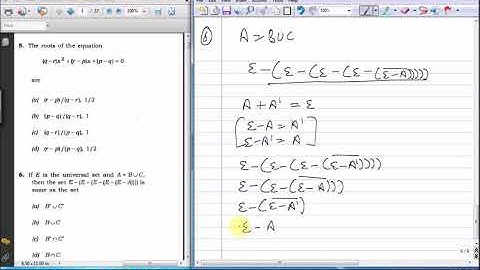 5. The roots of the equation
(q – r)x² + (r – p)x + (p – q) = 0
are
(a) (r – p)/(q – r), 1/2
(b) (p – q)/(q – r), 1
(c) (q – r)/(p – q), 1
(d) (r – p)/(q – r), 1/2
6. If E is the universal set and A = B ∪ C,
then the set E – (E – (E – (E – (E – A)))) is
same as the set
(a) B' ∪ C'
(b) B ∪ C
(c) B' ∩ C'
(d) B ∩ C
6) A = B ∪ C
ε – (ε – (ε – (ε – (ε – A))))
A + A' = ε
ε – A = A'
ε – A' = A
ε – (ε – (ε – (ε – A'))))
ε – (ε – (ε – A)))
ε – (ε – A')
ε – A